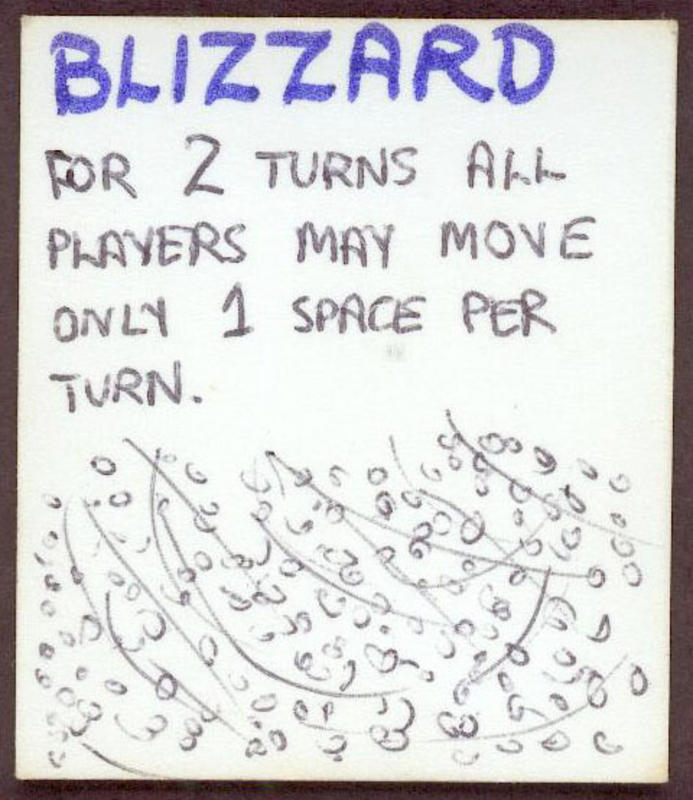 BLIZZARD
FOR 2 TURNS ALL
PLAYERS MAY MOVE
ONLY 1 SPACE PER
TURN.